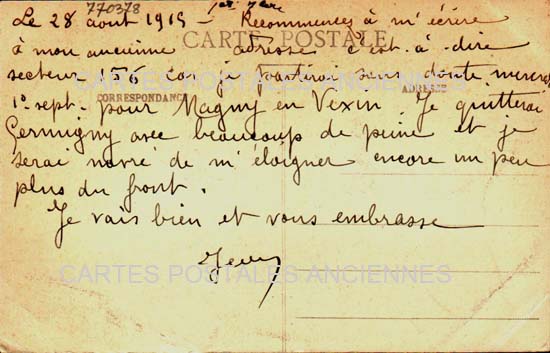 770378
Le 28 août 1915 - Recommences à m'écrire
CARTE POSTALE
à mon ancienne adresse c'est-à-dire
secteur 156 car je partirai sans doute mercredi
CORRESPONDANCE
ADRESSE
1er sept. pour Magny en Vexin. Je quitterai
Germigny avec beaucoup de peine et je
serai navré de m'éloigner encore un peu
plus du front.
Je vais bien et vous embrasse
CARTES POSTALES ANCIENNES